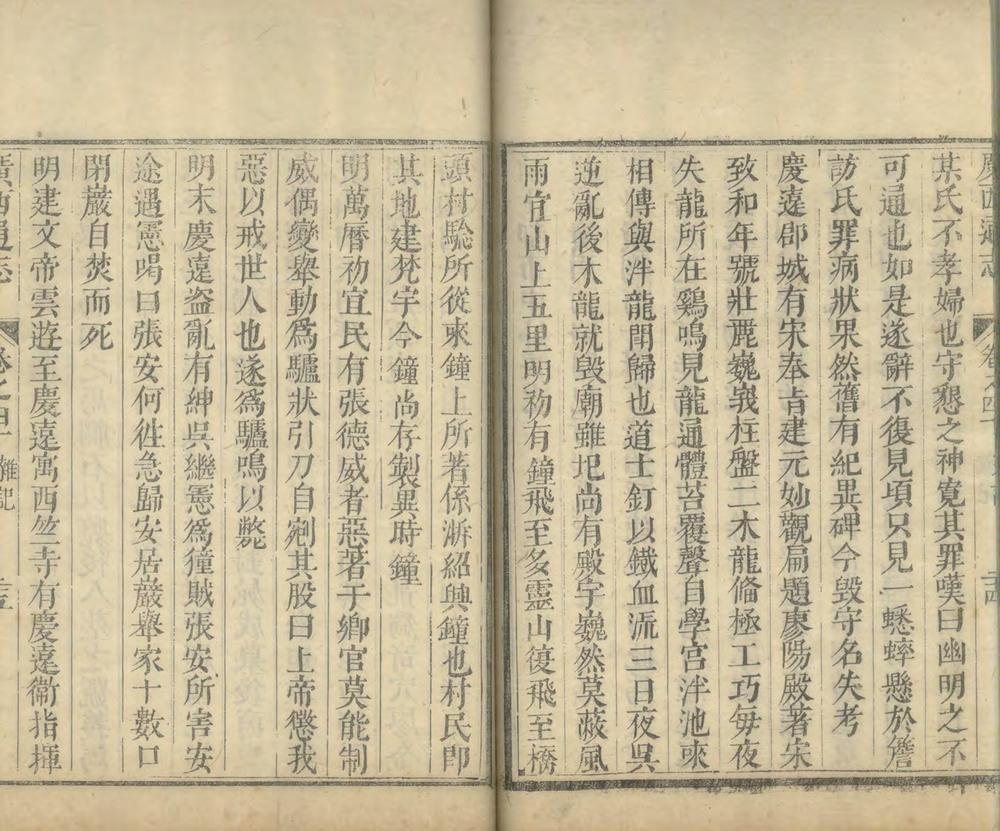 廣西通志 卷之四十 雜記
某氏不孝婦也守懇之神寬其罪嘆曰幽明之不
可通也如是遂辭不復見頃只見一蟋蟀懸於簷
訪氏罪病狀果然舊有紀異碑今毀守名失考
慶遠郡城有宋奉旨建元妙觀扁題廖陽殿著宋
致和年號壯麗巍峩柱盤二木龍俻極工巧每夜
失龍所在鷄鳴見龍通體苔覆聲自學宮泮池來
相傳與泮龍鬪歸也道士釘以鐵血流三日夜吳
逆亂後木龍就毀廟雖圯尚有殿宇巍然莫蔽風
雨宜山上五里明初有鐘飛至多靈山復飛至橋
頭村騐所從來鐘上所著係浙紹興鐘也村民卽
其地建梵宇今鐘尚存製異時鐘
明萬曆初宜民有張德威者惡著于鄉官莫能制
威偶變舉動爲驢狀引刀自剜其股曰上帝懲我
惡以戒世人也遂爲驢鳴以斃
明末慶遠盗亂有紳吳繼憲爲獞賊張安所害安
途遇憲喝曰張安何徃急歸安居巖舉家十數口
閉巖自焚而死
明建文帝雲遊至慶遠寓西竺寺有慶遠衞指揮
廣西通志 卷之四十 雜記 三五